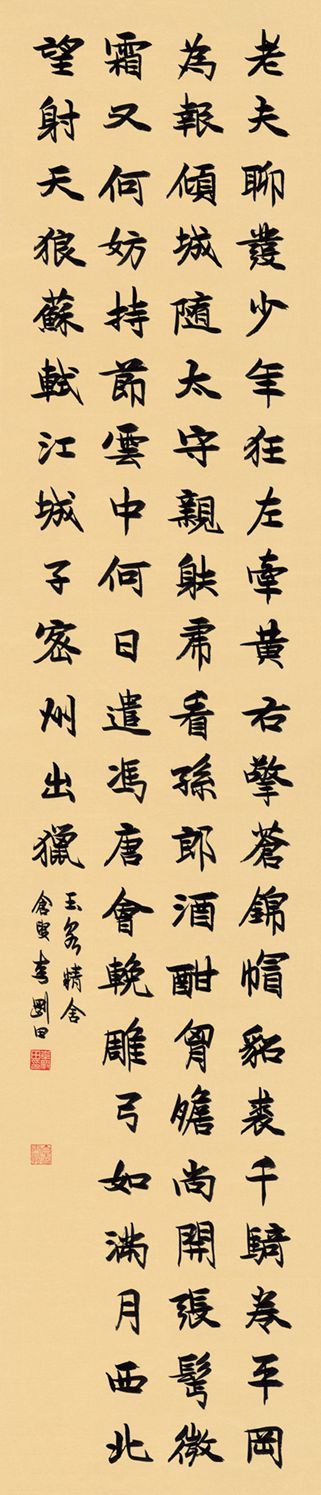 老夫聊發少年狂左牽黄右擎蒼錦帽貂裘千騎卷平岡
為報傾城随太守親射虎看孫郎酒酣胷膽尚開張鬢微
霜又何妨持節雲中何日遣馮唐會輓雕弓如滿月西北
望射天狼蘇軾江城子密州出獵
玉舍
李剛田